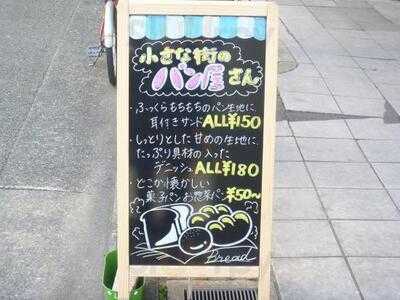 小さな街の
パン屋さん
・ふっくらもちもちのパン生地に
耳付きサンド ALL¥150
・しっとりとした甘めの生地に
たっぷり具材の入った
デニッシュ ALL¥180
・どこか懐かしい
菓子パンお惣菜パン ¥50〜
Bread